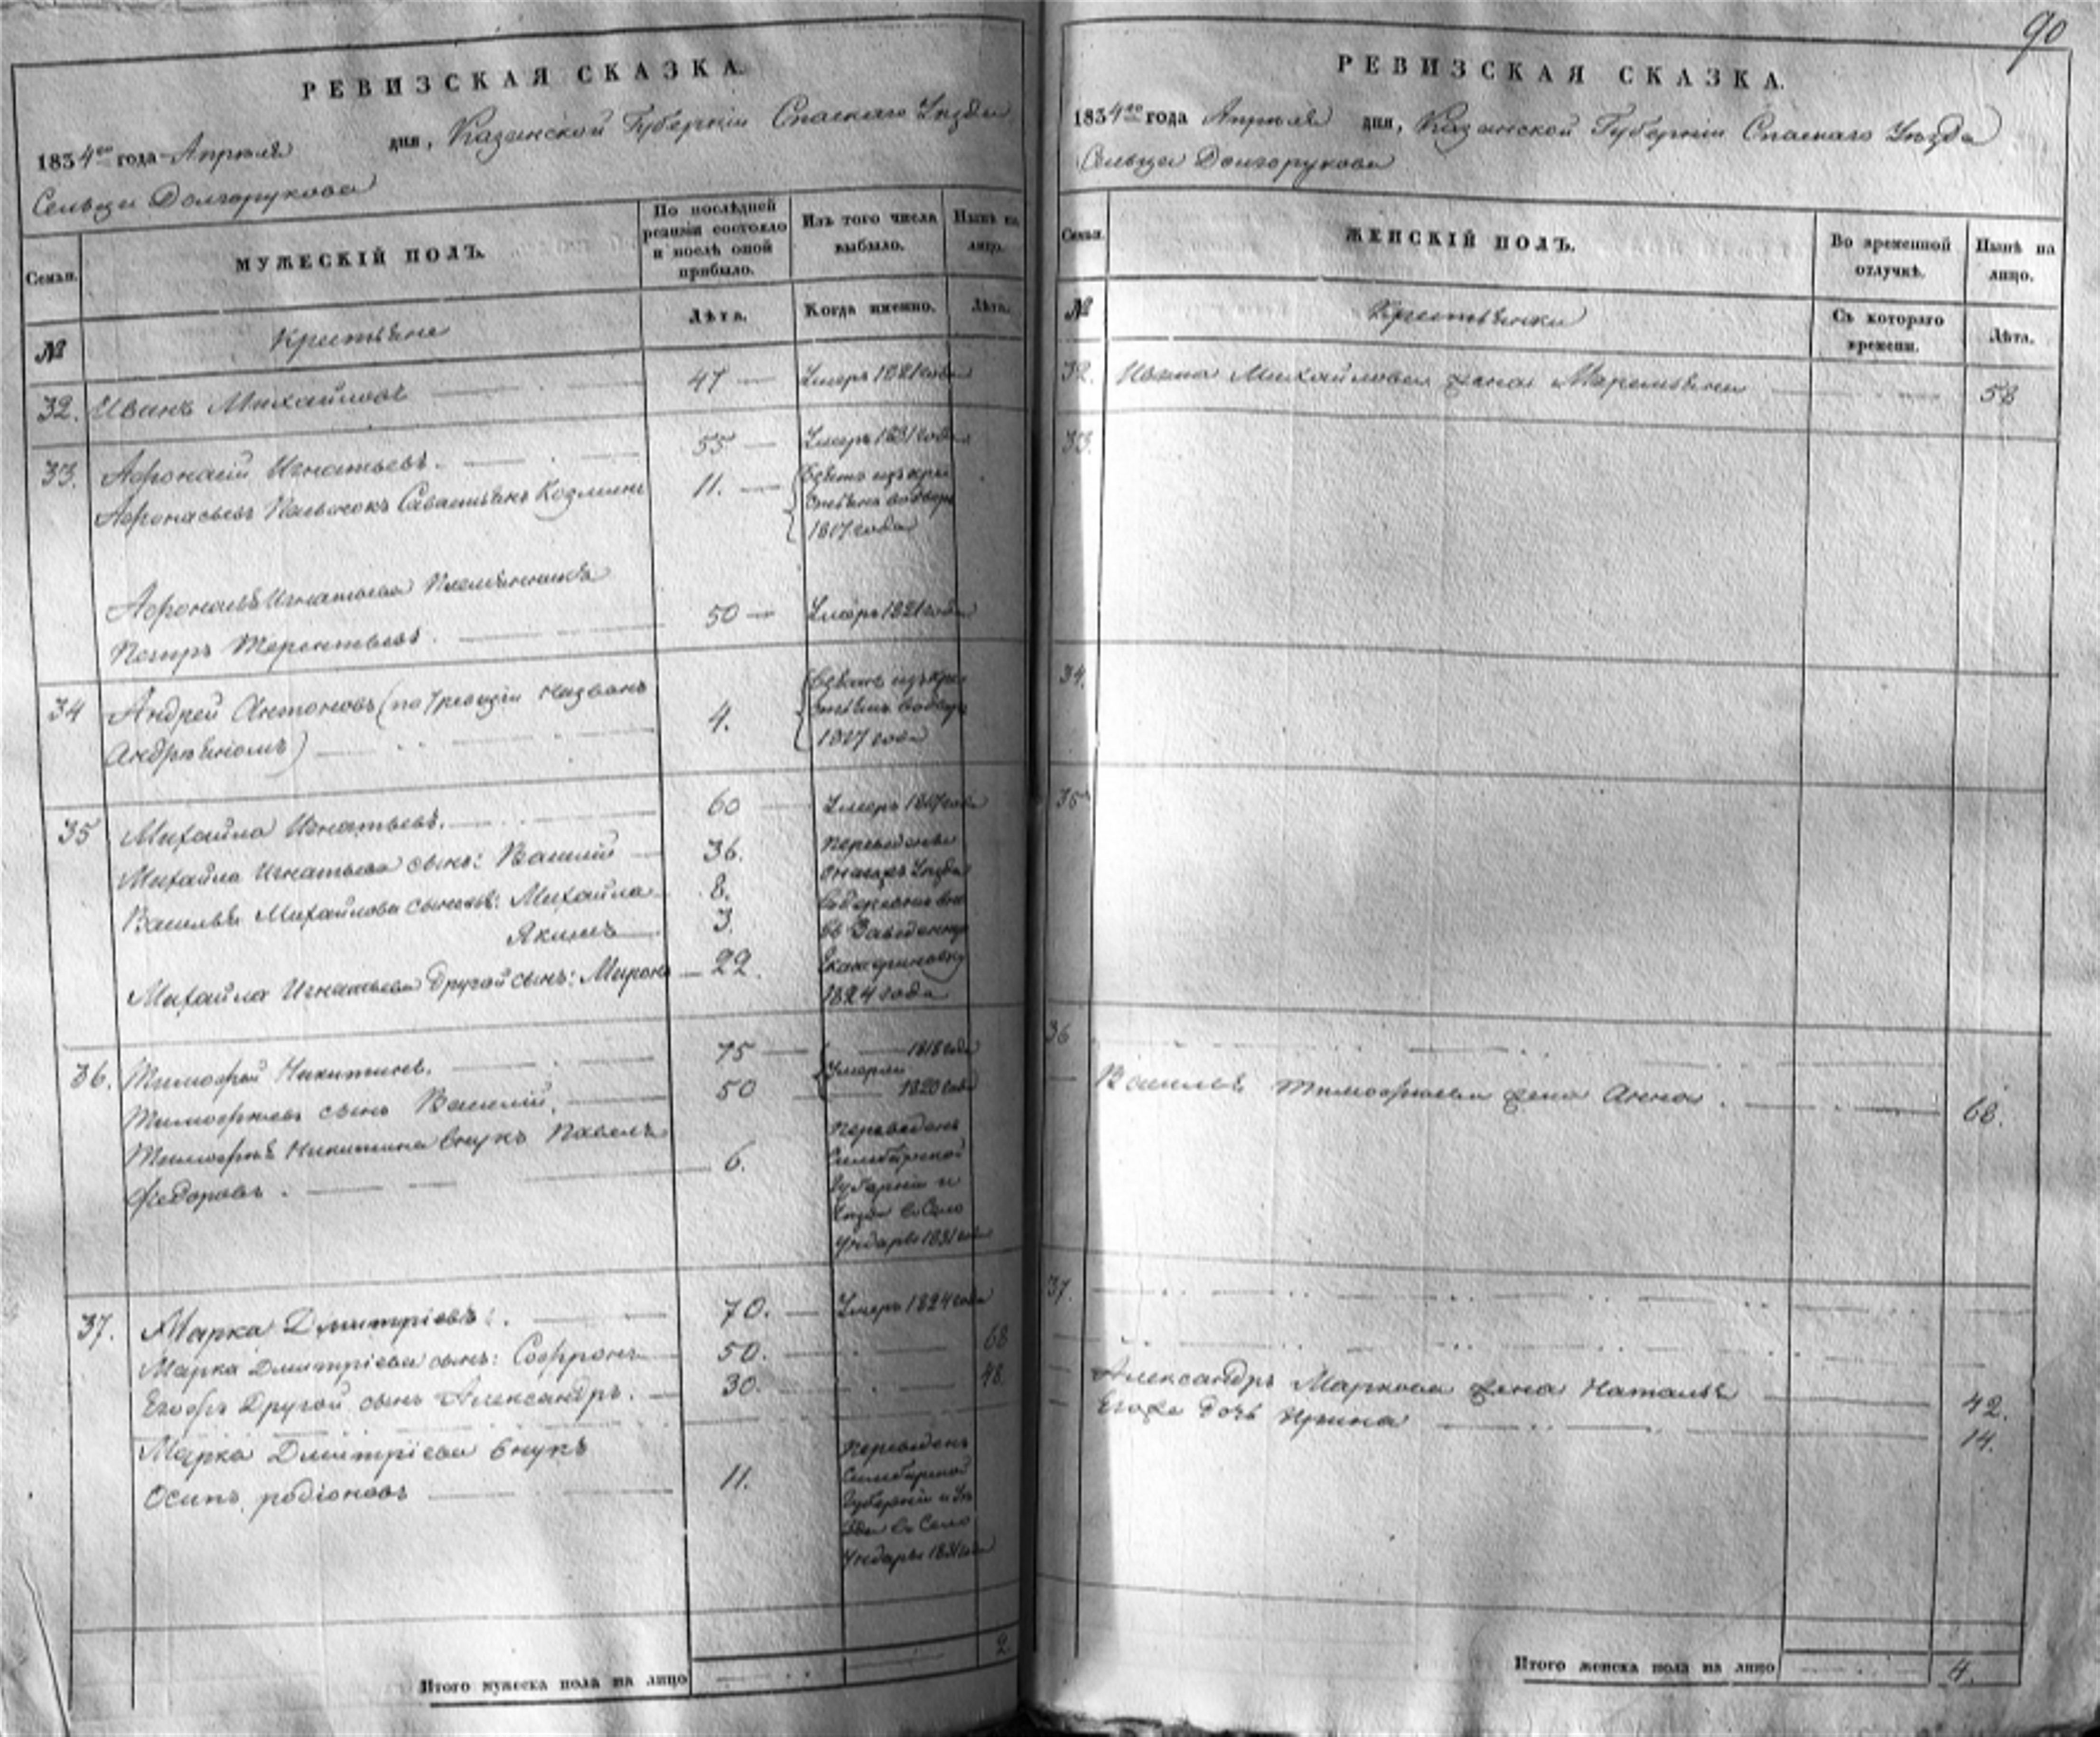 90
РЕВИЗСКАЯ СКАЗКА.
1834го года Апреля дня, Казанской Губернiи Спаскаго Уезда
Сельца Долгорукова
Семьи. МУЖЕСКIЙ ПОЛЪ. По послѣдней ревизiи состояло и послѣ оной прибыло. Изъ того числа выбыло. Нынѣ на лицо.
№ Крестьяне Лѣта. Когда именно. Лѣта.
32. Иванъ Михайловъ 47 Умеръ 1821 года
33. Афонасiй Игнатьевъ. 55 Умеръ 1831 года
Афонасьевъ Савастьянъ Козмин 11. взятъ изъ кре
стьянъ во дворъ
1817 года
Игнатьева Племянникъ
Петръ Терентьевъ. 50 Умеръ 1821 года
34 Андрей Антоновъ (по 7 ревизiи названъ
Андрѣяномъ) 4. взятъ изъ кре
стьянъ во дворъ
1817 года
35 Михайла Игнатьевъ. 60 Умеръ года
Михайла Игнатьева сынъ: Василiй 36. Переведены
Василья Михайлова сыновья: Михайла 8. Уезда
Якимъ 3.
Михайла Игнатьева Другой сынъ: Миронъ 22. Екатериновку
1824 года
36. Тимофей Никитинъ. 75 1818 года
Умерли
Тимофеевъ сынъ Василiй. 50 1820 года
Тимофея Никитина внукъ Павелъ
Федоровъ. 6. Переведенъ
Симбирской
Губернiи и
Уезда в Село
Ундоры 1831 года
37. Марка Дмитрiевъ. 70. Умеръ 1824 года
Марка Дмитрiева сынъ: Софронъ 50. 68
Егожъ Другой сынъ Александръ. 30. 48.
Марка Дмитрiева внукъ
Осипъ родiоновъ 11. Переведенъ
Симбирской
Губернiи и Уе
зда в Село
Ундоры 1831 года
Итого мужеска пола на лицо 2.
РЕВИЗСКАЯ СКАЗКА.
1834го года Апреля дня, Казанской Губернiи Спаскаго Уезда
Сельца Долгорукова
Семьи. ЖЕНСКIЙ ПОЛЪ. Во временной отлучкѣ. Нынѣ на лицо.
№ Крестьянки Съ котораго времени. Лѣта.
32. Ивана Михайлова жена 58
33.
34.
35
36
Василья Тимофеева жена Анна. 68.
37.
Александръ Маркова жена Наталья 42.
Егоже дочь Ирина 14.
Итого женска пола на лицо 4.